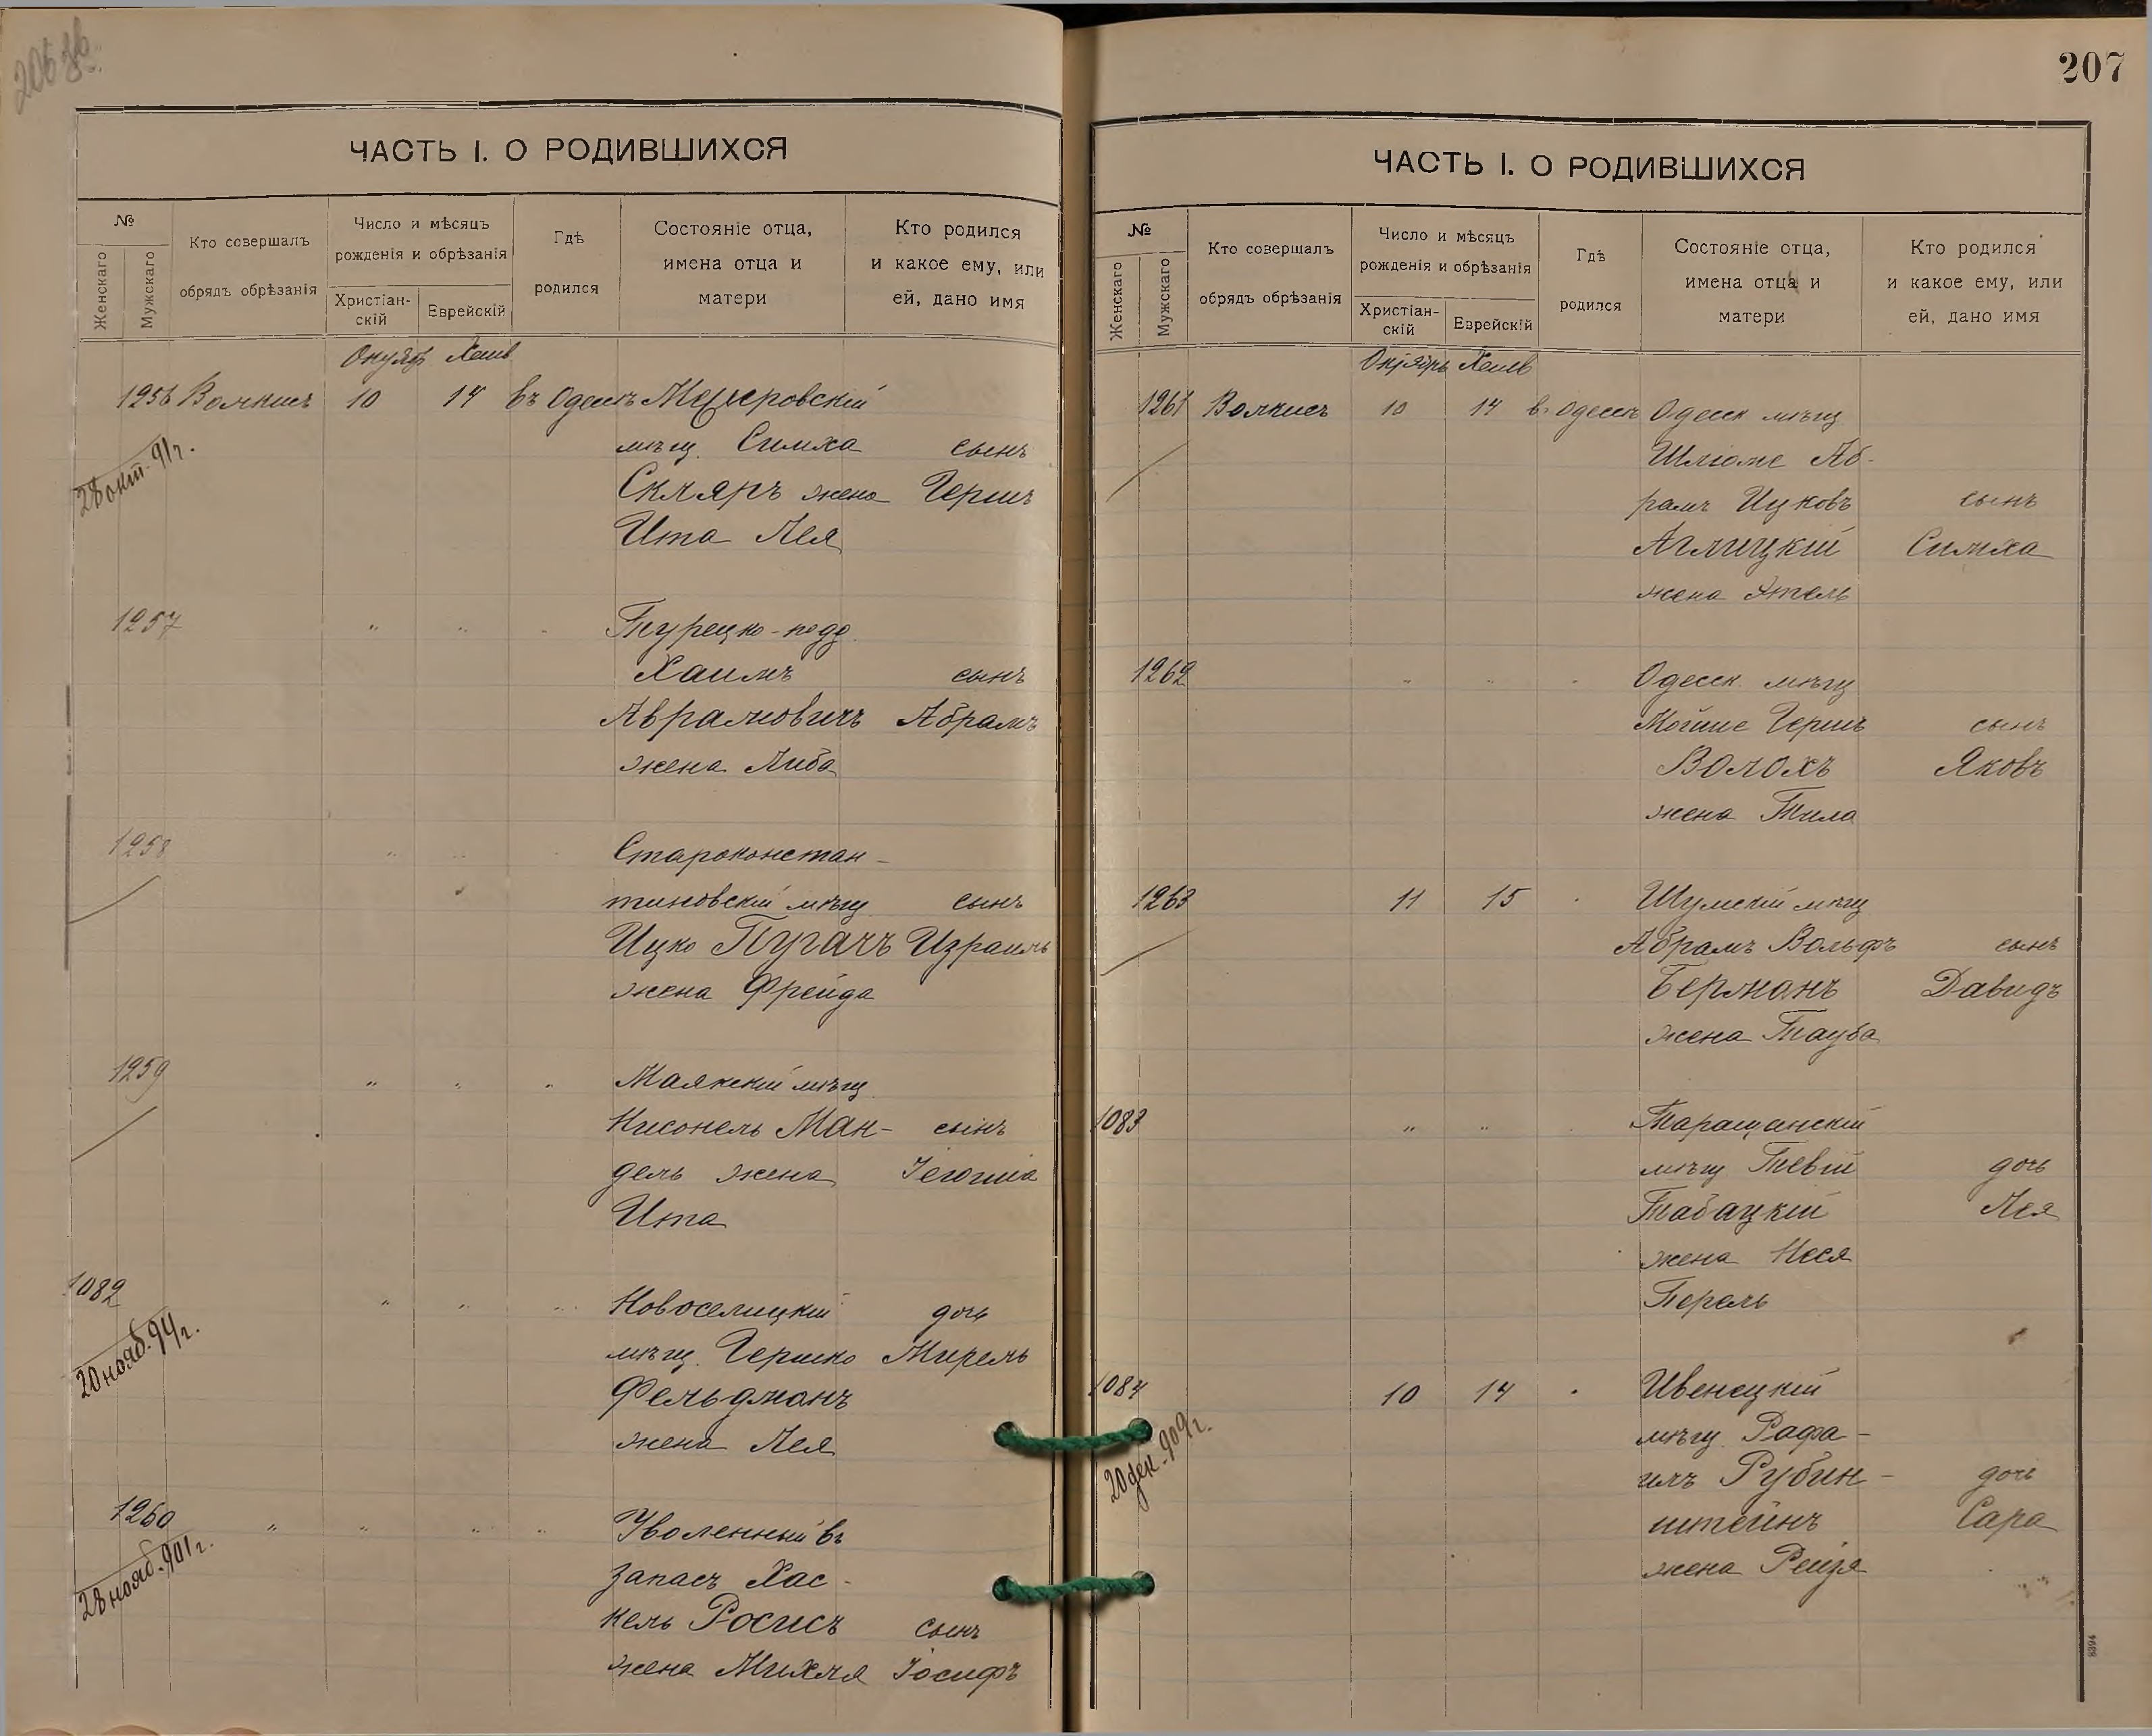 206 об.
ЧАСТЬ I. О РОДИВШИХСЯ
№
Женскаго
Мужскаго
Кто совершалъ
обрядъ обрѣзанія
Число и мѣсяцъ
рожденія и обрѣзанія
Христіан-
скій
Еврейскій
Гдѣ
родился
Состояніе отца,
имена отца и
матери
Кто родился
и какое ему, или
ей, дано имя
Октяб. Хешв
1256 Волкисъ 10 14 въ Одессѣ Межеровскій
мѣщ. Симха сынъ
28 окт. 91 г.
Скляръ жена Гершъ
Ита Лея
1257 " " " Турецко-подд.
Хаимъ сынъ
Аврамовичъ Абрамъ
жена Либа
1258 " " Староконстан-
тиновскій мѣщ. сынъ
Ицко Пугачъ Израиль
жена Фрейда
1259 " " " Маякскій мѣщ.
Нисонель Ман- сынъ
дель жена Іегошіа
Ита
1082 " " " Новоселицкій дочь
20 нояб. 94 г.
мѣщ. Гершко Мирель
Фельдманъ
жена Лея
1260 " " " " Уволенный въ
28 нояб. 901 г.
запасъ Хас-
кель Росисъ сынъ
жена Михля Іосифъ
207
ЧАСТЬ I. О РОДИВШИХСЯ
№
Женскаго
Мужскаго
Кто совершалъ
обрядъ обрѣзанія
Число и мѣсяцъ
рожденія и обрѣзанія
Христіан-
скій
Еврейскій
Гдѣ
родился
Состояніе отца,
имена отца и
матери
Кто родился
и какое ему, или
ей, дано имя
Октябрь Хешв
1261 Волкисъ 10 14 въ Одессѣ Одесск мѣщ
Шлиоме Аб-
рамъ Ицковъ сынъ
Аглицкій Симха
жена Этель
1262 " " " Одесск. мѣщ
Мойше Гершъ сынъ
Волохъ Яковъ
жена Тила
1263 11 15 " Шумскій мѣщ
Абрамъ Вольфъ сынъ
Берманъ Давидъ
жена Тауба
1083 " " Таращанскій
мѣщ Тевій дочь
Табацкій Лея
жена Нася
Перель
1084 10 14 " Ивенецкій
20 дек. 909 г.
мѣщ. Рафа-
илъ Рубин- дочь
штейнъ Сара
жена Рейзя
8394